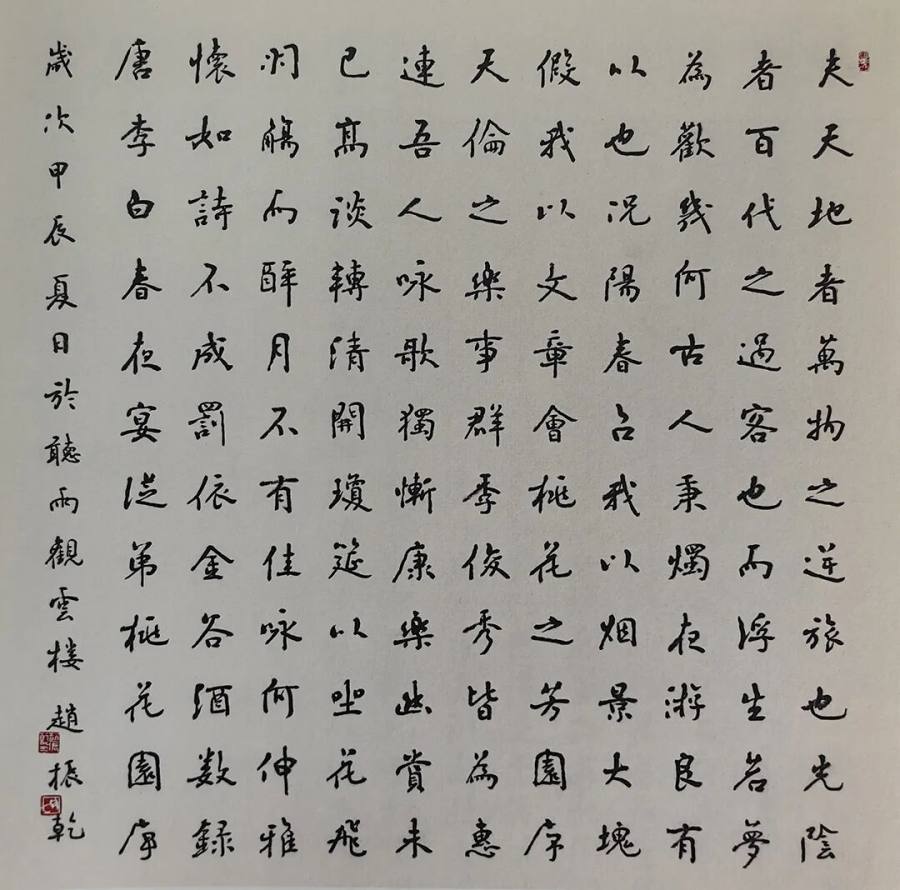 夫天地者萬物之逆旅也光陰
者百代之過客也而浮生若夢
為歡幾何古人秉燭夜游良有
以也況陽春召我以烟景大塊
假我以文章會桃花之芳園序
天倫之樂事群季俊秀皆為惠
連吾人咏歌獨慚康樂幽賞未
已高談轉清開瓊筵以坐花飛
羽觴而醉月不有佳咏何伸雅
懷如詩不成罰依金谷酒数録
唐李白春夜宴從弟桃花園序
歲次甲辰夏日於聽雨觀雲楼趙振乾